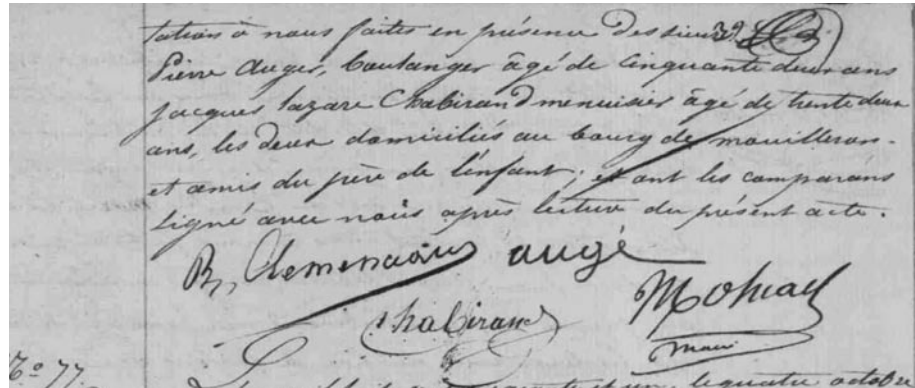 tation à nous faites en présence des sieurs
Pierre Auger, boulanger âgé de cinquante deux ans
Jacques Lazare Chabirand menuisier âgé de trente deux
ans, les deux domiciliés au bourg de mouilleron.
et amis du père de l'enfant; et ont les comparans
signé avec nous après lecture du présent acte.
augé
Chabirand
maire
N.o 77
le quatre octobre